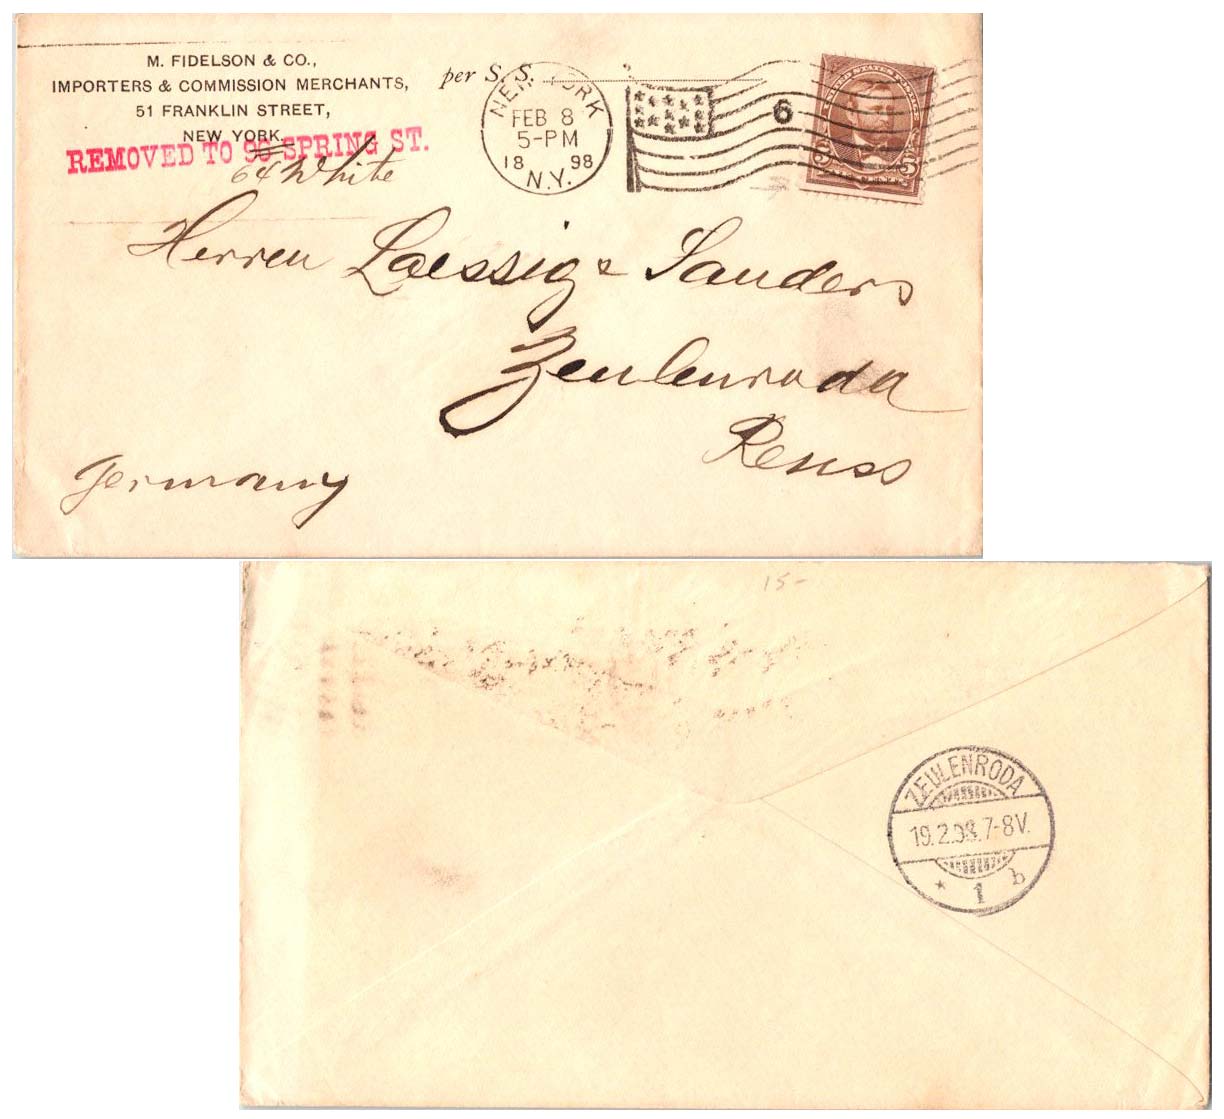 M. FIDELSON & CO.,
IMPORTERS & COMMISSION MERCHANTS,
51 FRANKLIN STREET,
NEW YORK.
REMOVED TO 96 SPRING ST.
64 White
per S. S.
NEW YORK
FEB 8
5-PM
18 98
N.Y.
6
UNITED STATES POSTAGE
5 5
Herren Laessig & Sanders
Zeulenroda
Reuss
Germany
15-
ZEULENRODA
19.2.98.7-8V.
* 1 b